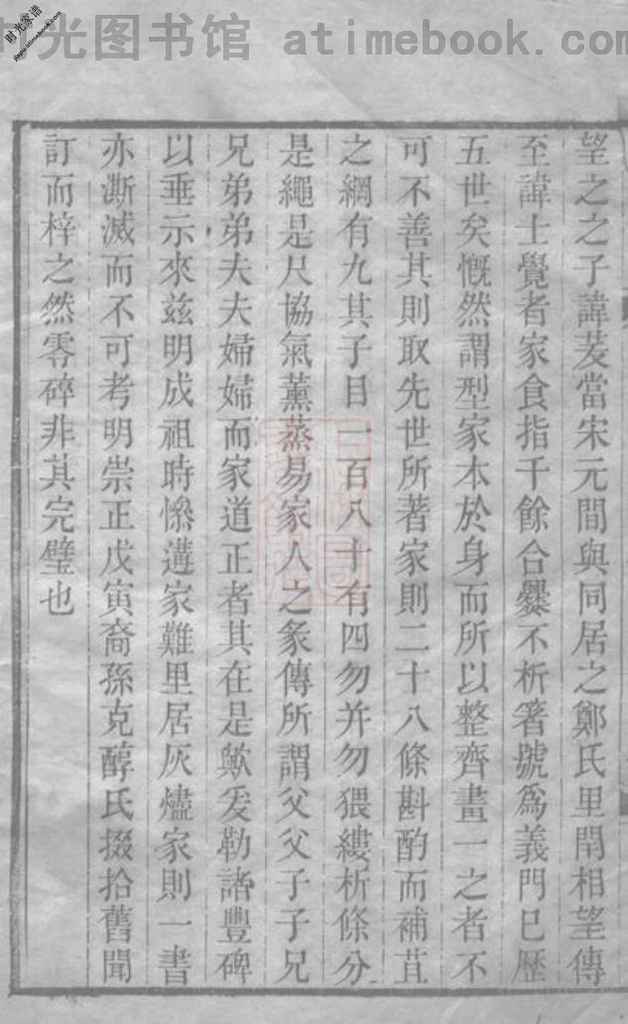 时光图书馆 atimebook.com
时光家谱
望之之子諱苃當宋元間與同居之鄭氏里閈相望傳
至諱士覺者家食指千餘合爨不析箸號爲義門已歷
五世矣慨然謂型家本於身而所以整齊畫一之者不
可不善其則取先世所著家則二十八條斟酌而補苴
之綱有九其子目一百八十有四勿并勿猥縷析條分
是繩是尺協氣薰蒸易家人之彖傳所謂父父子子兄
兄弟弟夫夫婦婦而家道正者其在是歟爰勒諸豐碑
以垂示來兹明成祖時慘遘家難里居灰燼家則一書
亦澌滅而不可考明崇正戊寅裔孫克醇氏掇拾舊聞
訂而梓之然零碎非其完璧也